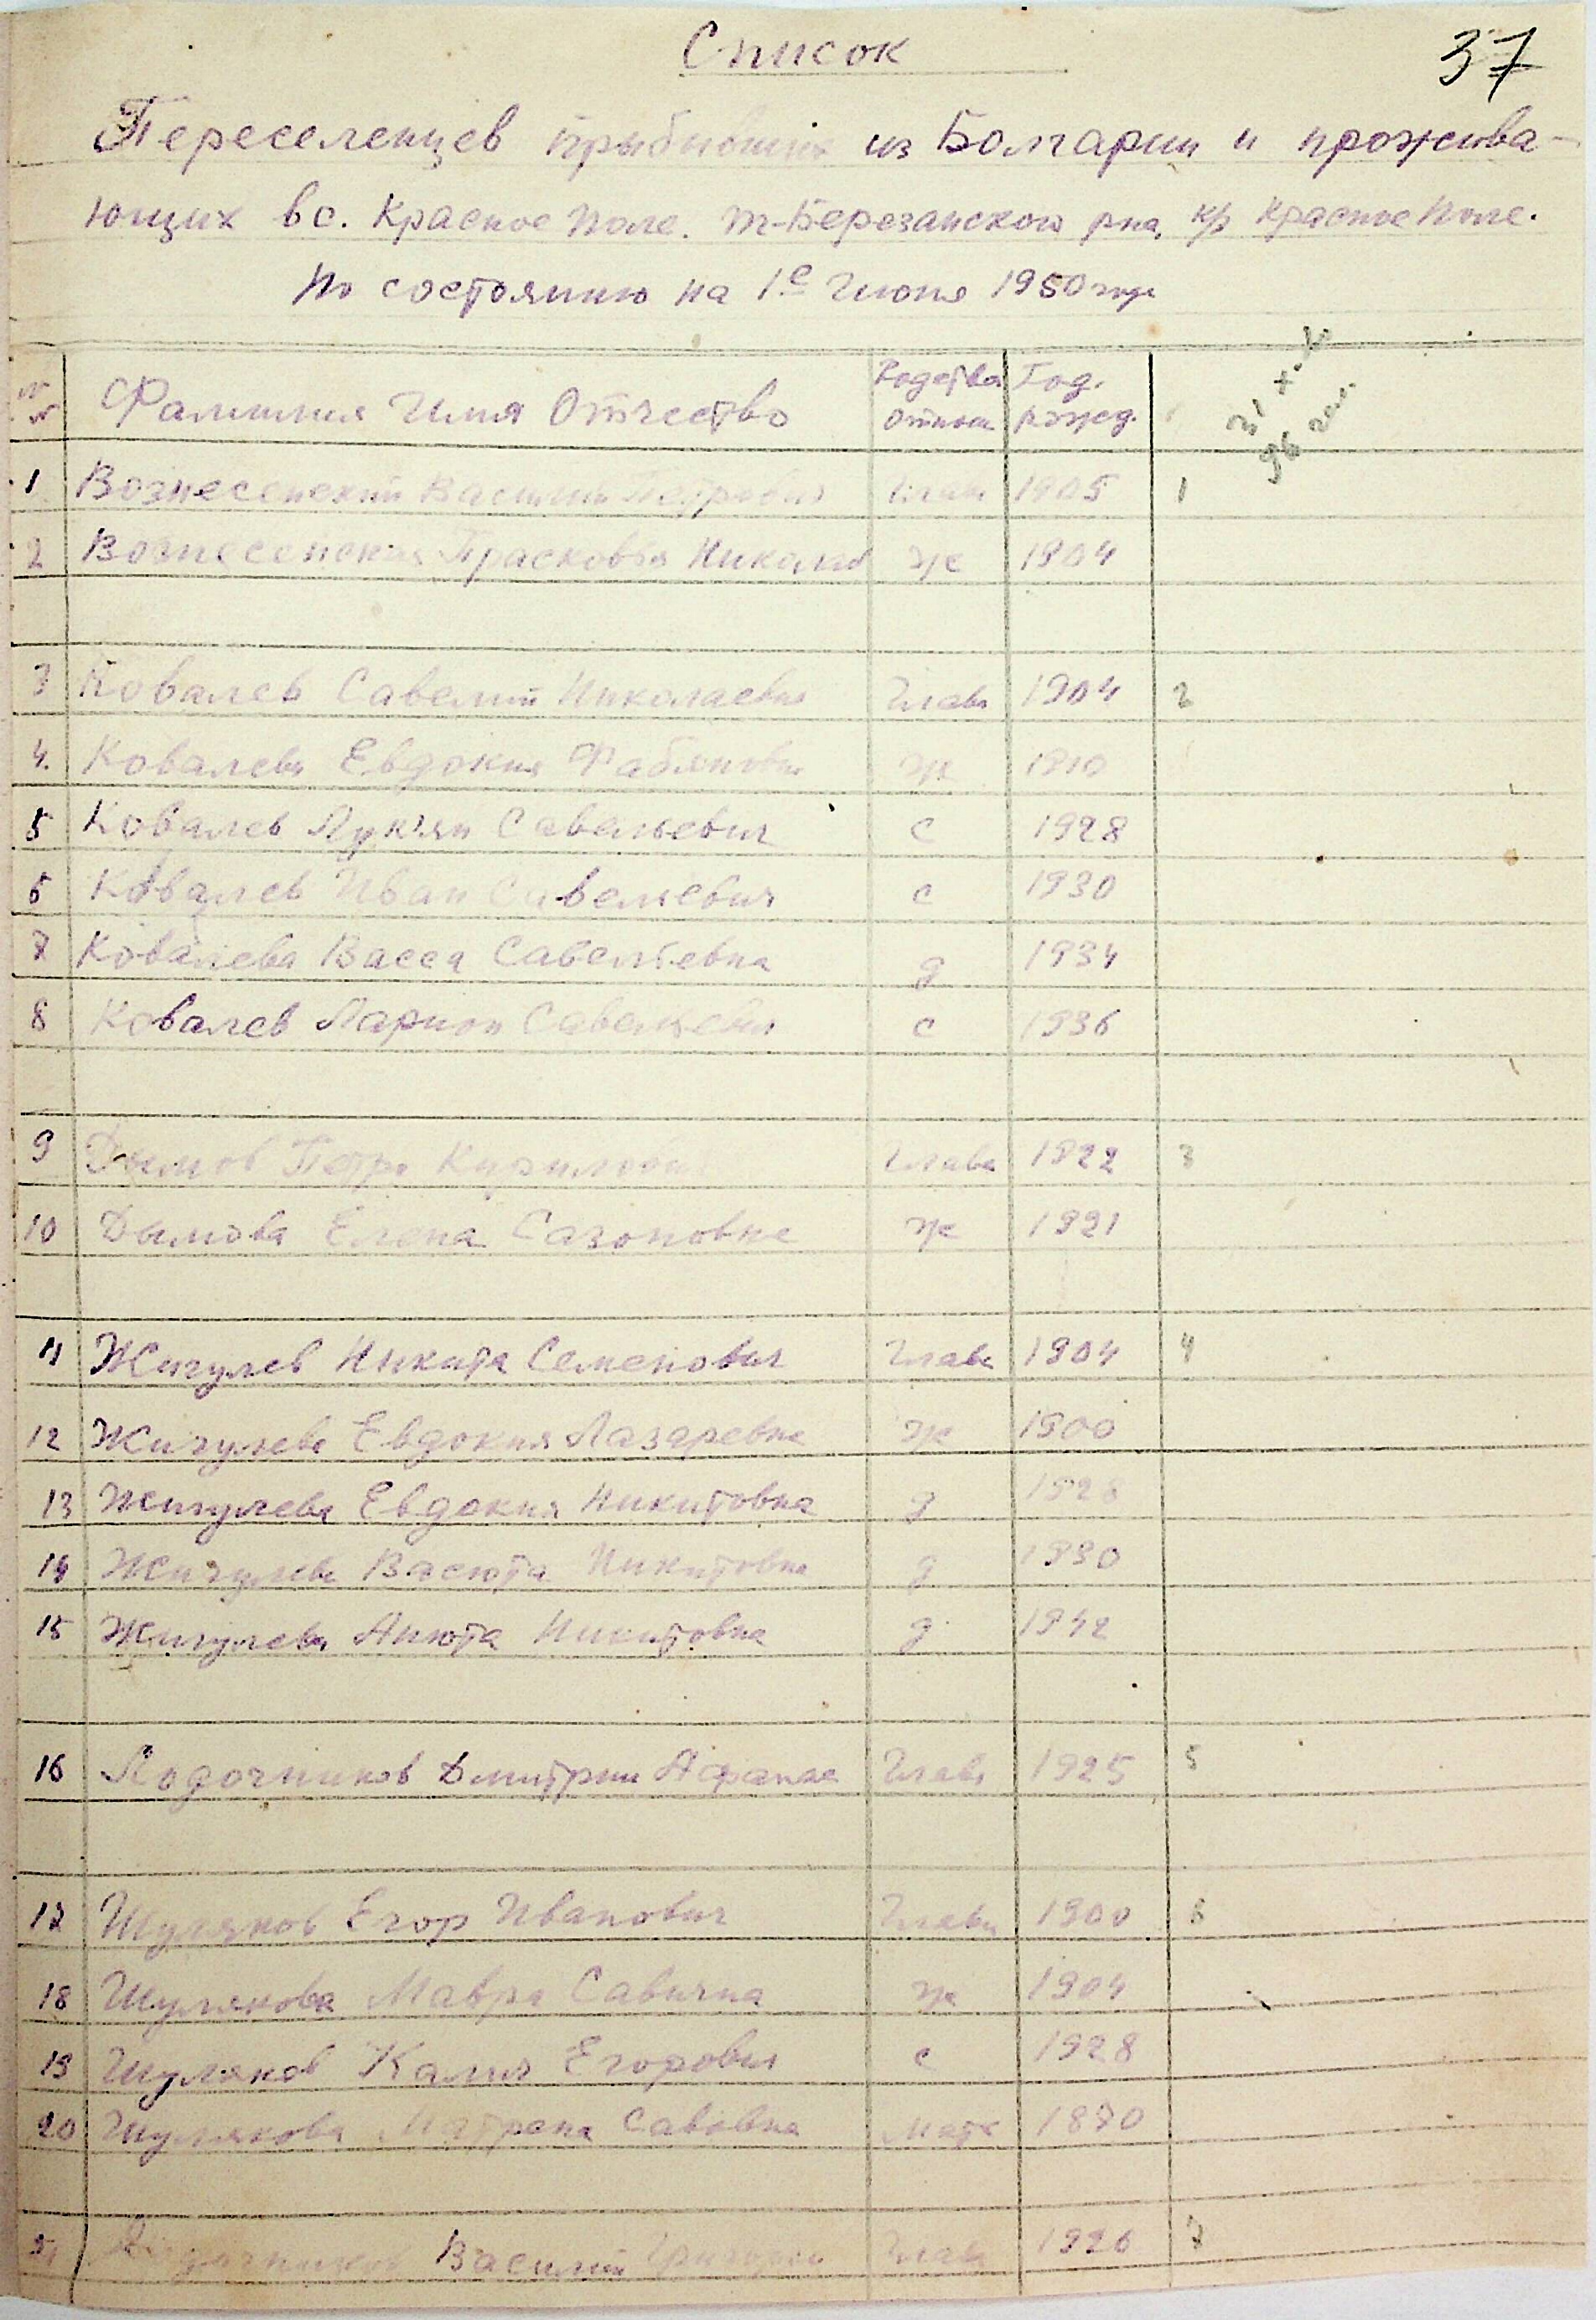 Список
37
Переселенцев прыбывших из Болгарии и прожива-
ющих в с. Красное Поле. Т-Березанского р-на, к/з Красное Поле.
По состоянию на 1е Июня 1950 года
№ № Фамилия Имя Отчество Родства Отнош Год. рожд. 31 х-в 96 чел.
1 Вознесенский Василий Петрович Глава 1905 1
2 Вознесенская Прасковья Николаев ж 1904
3 Ковалев Савелий Николаевич Глава 1904 2
4. Ковалева Евдокия Фабяновна ж 1910
5 Ковалев Лукян Савельевич с 1928
6 Ковалев Иван Савельевич с 1930
7 Ковалева Васса Савельевна д 1934
8 Ковалев Ларион Савельевич с 1936
9 Дымов Петр Кирилович Глава 1922 3
10 Дымова Елена Сазоновна ж 1921
11 Жигулев Никита Семенович Глава 1904 4
12 Жигулева Евдокия Лазаревна ж 1900
13 Жигулева Евдокия Никитовна д 1928
14 Жигулева Васюта Никитовна д 1930
15 Жигулева Анюта Никитовна д 1942
16 Лодочников Дмитрий Афанас Глава 1925 5
17 Шуляков Егор Иванович Глава 1900 6
18 Шулякова Мавра Савична ж 1904
19 Шуляков Калин Егорович с 1928
20 Шулякова Матрена Саввовна Мать 1870
21 Василий Глава 1926 7